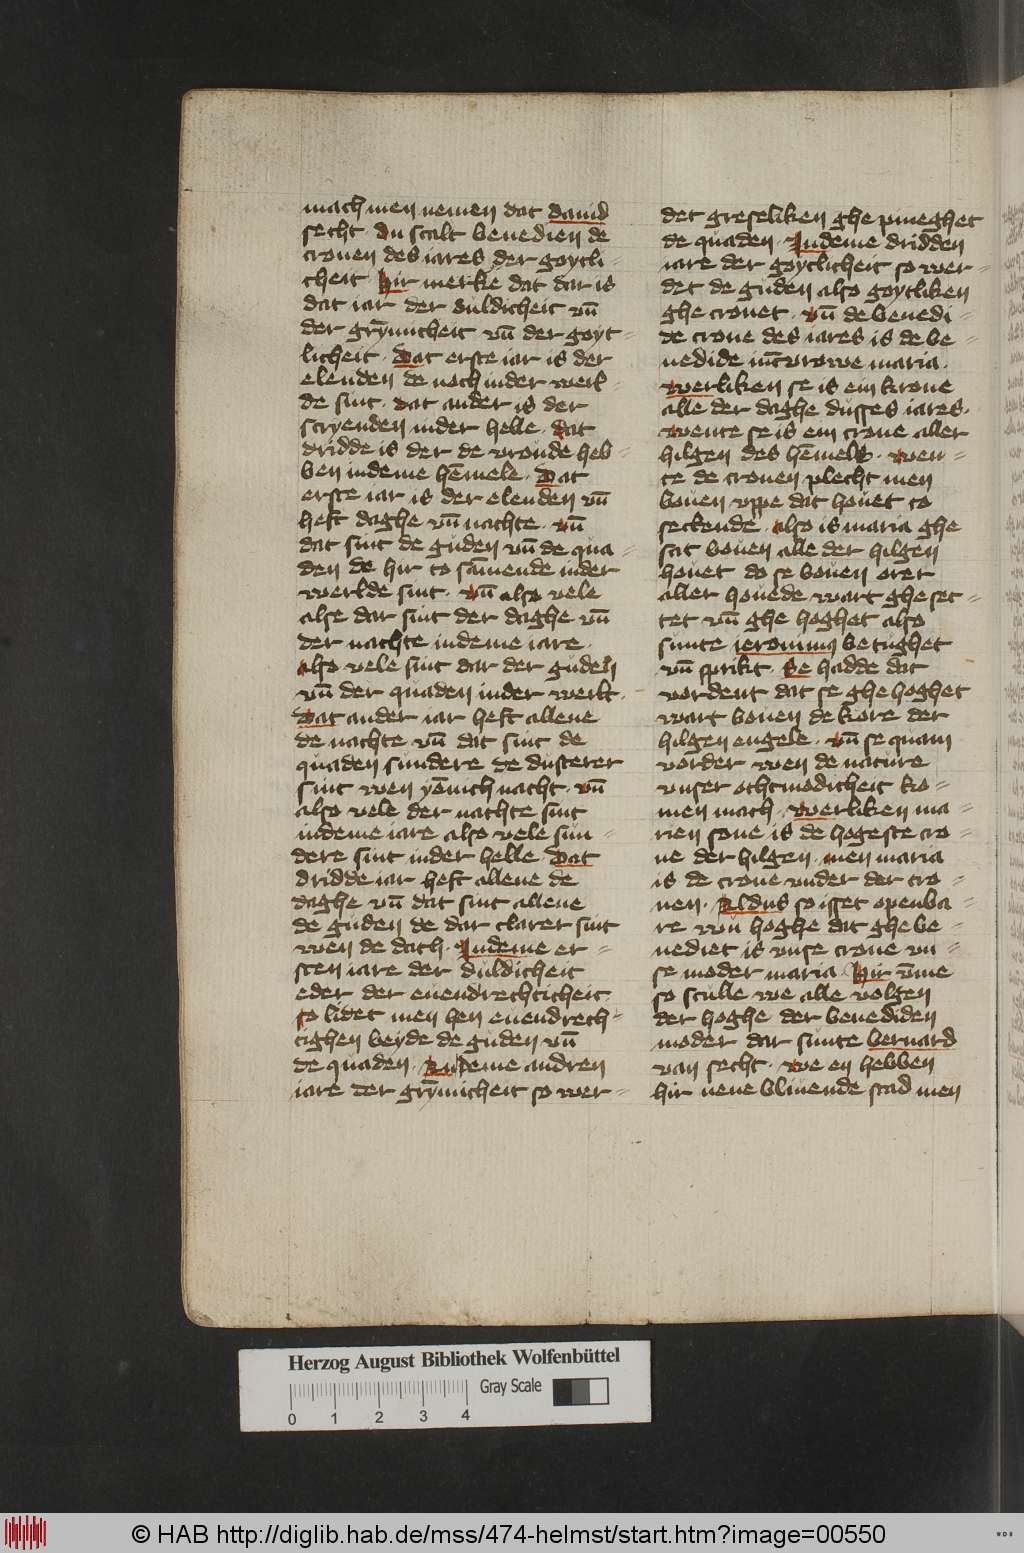 mach men nemen dat dauid
secht · du scalt benedien de
cronen des iares der goytli-
cheit Hir merke dat dar is
dat iar der duldicheit vn̄
der grȳmicheit vn̄ der goyt-
licheit · Dat erste iar is der
elenden de noch inder werl-
de sint · dat ander is der
scryenden inder helle · dat
dridde is der de vroude heb-
ben indeme hēmele · Dat
erste iar is der elenden vn̄
heft daghe vn̄ nachte · vn̄
dat sint de guden vn̄ de qua-
den de hir to sāmende inder
werlde sint · vn̄ also vele
alse dar sint der daghe vn̄
der nachte indeme iare ·
also vele sint dar der guden
vn̄ der quaden inder werlt ·
Dat ander iar heft allene
de nachte vn̄ dat sint de
quaden sundere de dusterer
sint wen yēnich nacht · vn̄
also vele der nachte sint
indeme iare also vele sun-
dere sint inder helle · Dat
dridde iar heft allene de
daghe vn̄ dat sint allene
de guden de dar clarer sint
wen de dach · Indeme er-
sten iare der duldicheit
eder der euendrechticheit
so lidet men hen euendrech-
tighen beyde de guden vn̄
de quaden · Indeme andren
iare der grȳmicheit so wer-
det greseliken ghe pineghet
de quaden · Indeme dridden
iare der goytlicheit so wer-
det de guden also goytliken
ghe cronet · vn̄ de benedi-
de crone des iares is de be-
nedide iūcvrowe maria ·
werliken se is ein krone
alle der daghe dusses iares ·
wente se is ein crone aller
hilgen des hēmels · wen-
te de cronen plecht men
bouen vppe dat houet to
settende · also is maria ghe
sat bouen alle der hilgen
houet do se bouen orer
aller houede wart ghe set-
tet vn̄ ghe hoghet also
sunte ieronimus betughet
vn̄ sprikt · Se hadde dat
vordent dat se ghe hoghet
wart bouen de kore der
hilgen engele · vn̄ se quam
vorder wen de nature
vnser othmodicheit ko-
men mach · werliken ma-
rien sone is de hogeste cro-
ne der hilgen · men maria
is de crone vnder der cro-
nen · Aldus so isset openba-
re wu hoghe dat ghe be-
nediet is vnse crone vn-
se moder maria · Hir v̄me
so sculle we alle volgen
der hoghe der benediden
moder dar sunte bernard
van secht · we en hebben
hir nene bliuende stad men
Herzog August Bibliothek Wolfenbüttel
Gray Scale
0 1 2 3 4
© HAB http://diglib.hab.de/mss/474-helmst/start.htm?image=00550